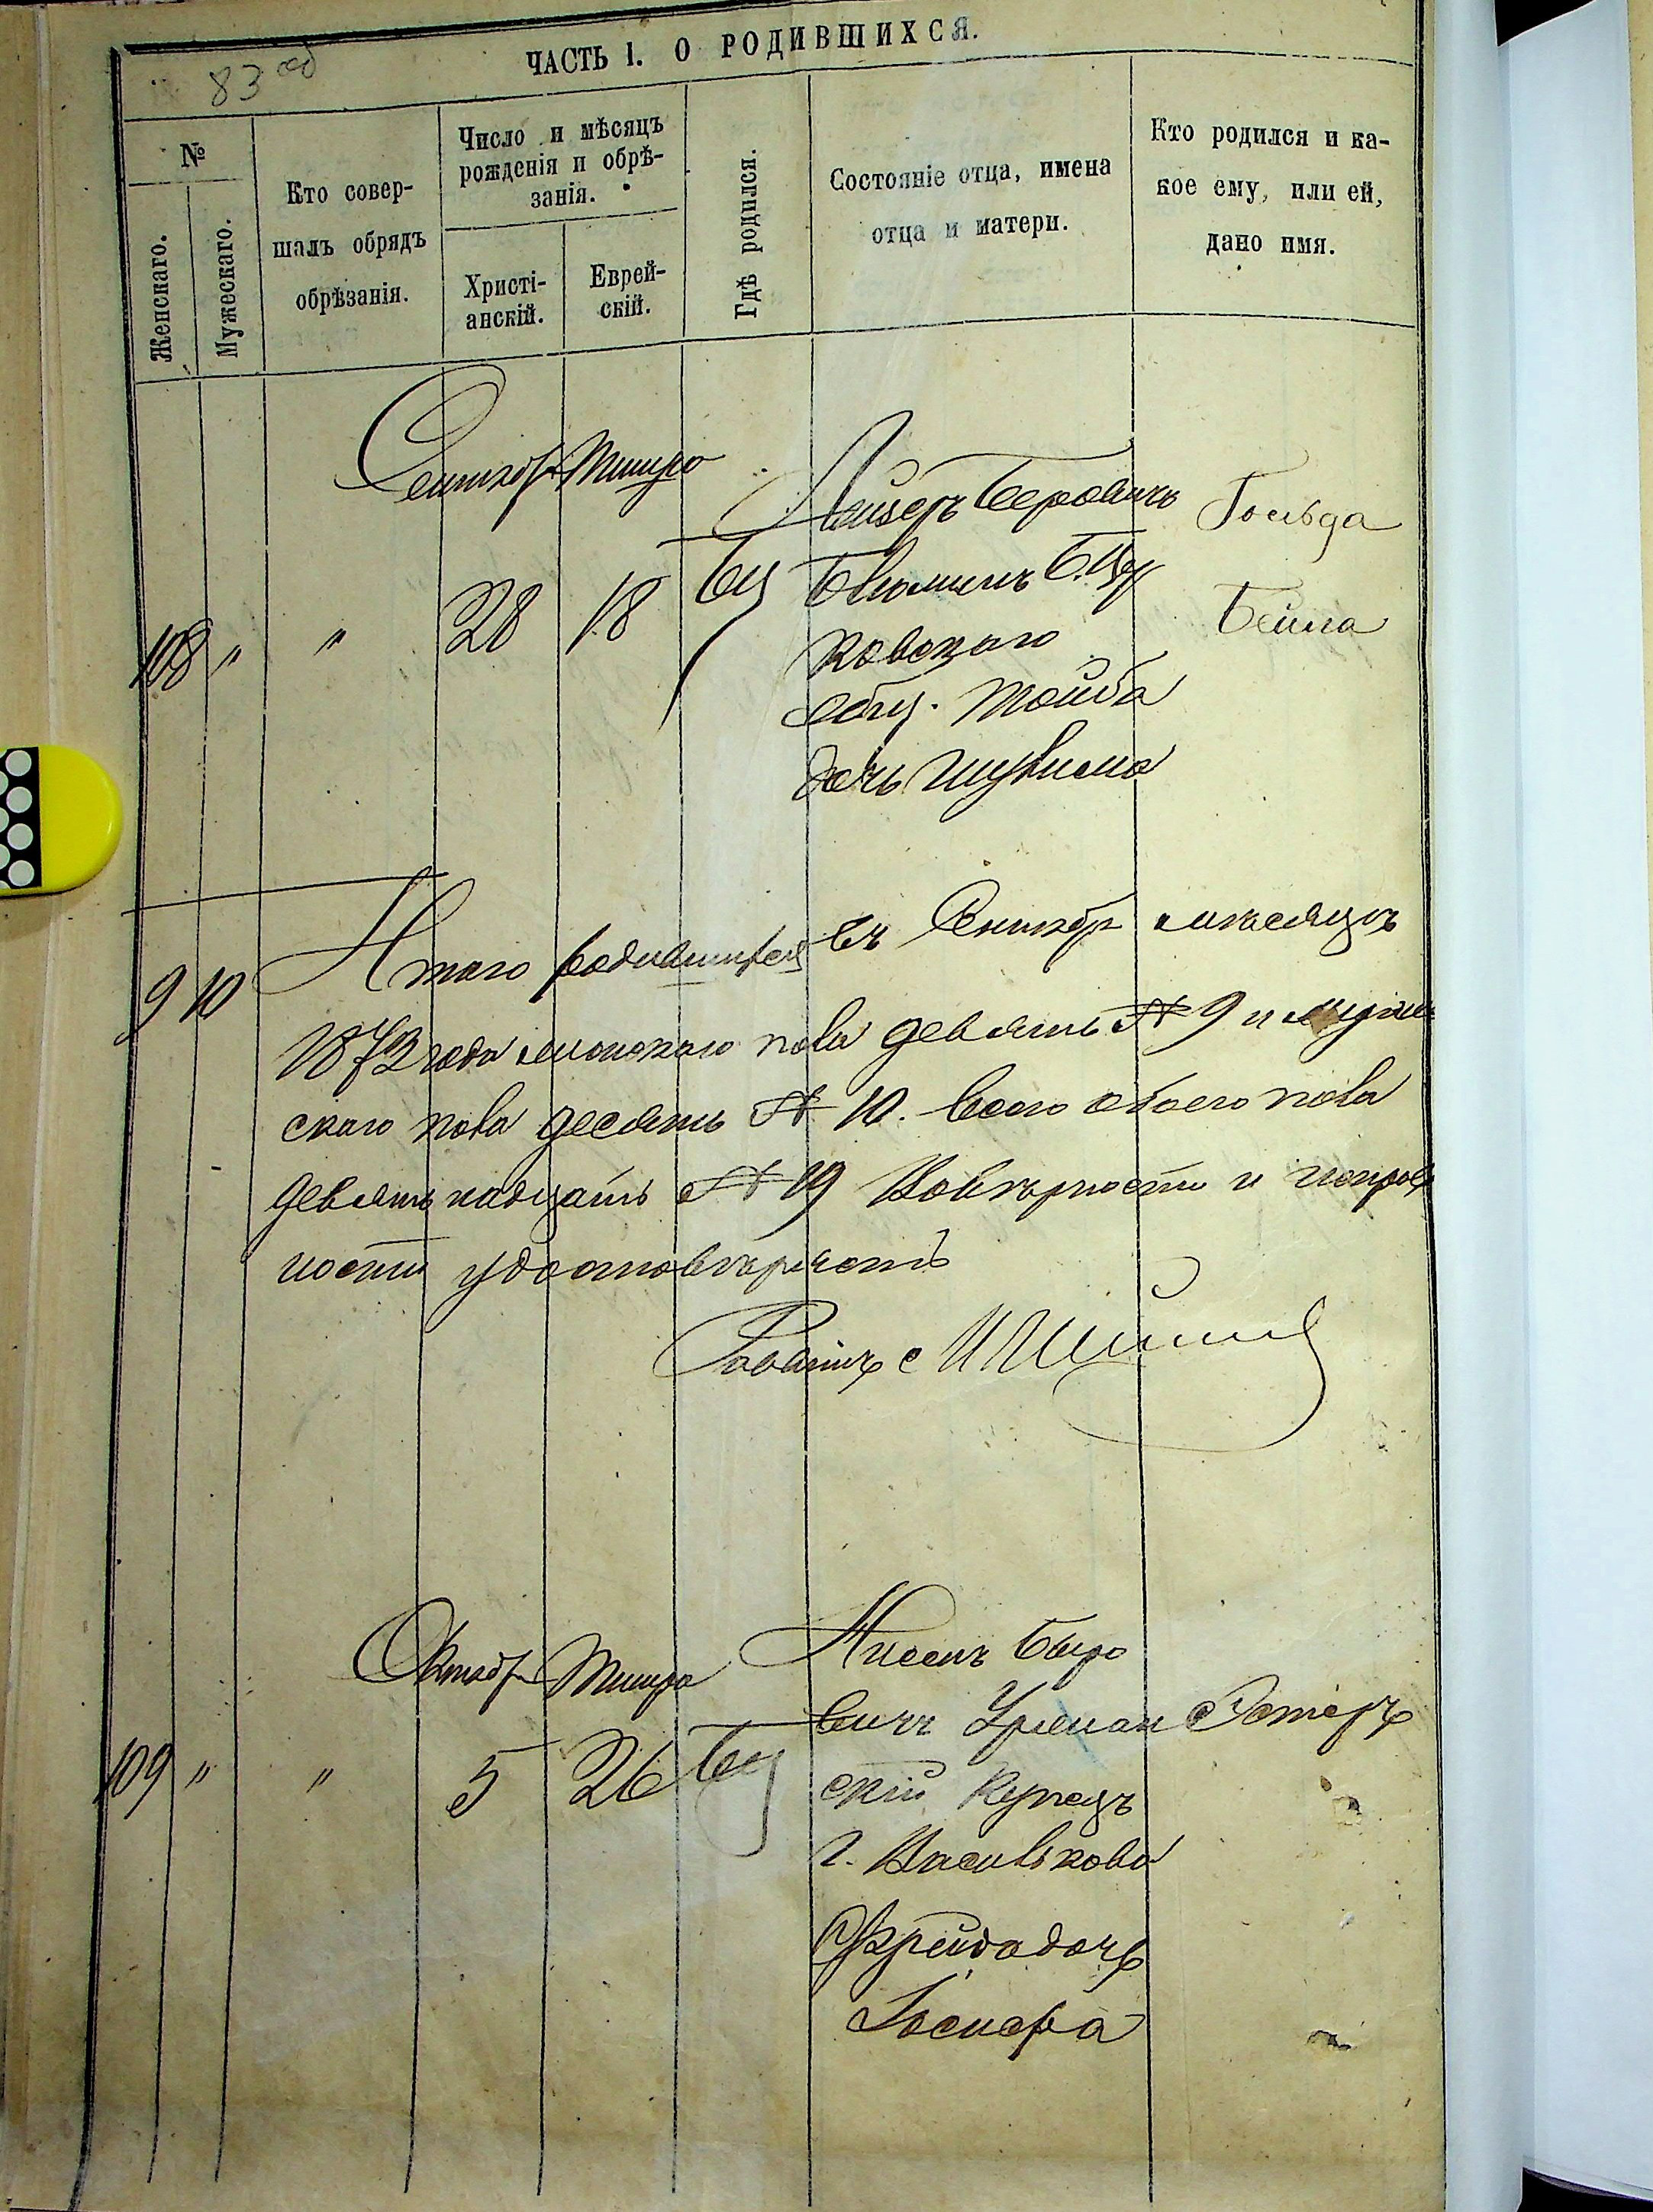 83 об
ЧАСТЬ I. О РОДИВШИХСЯ.
№
Женскаго.
Мужескаго.
Кто совер-
шалъ обрядъ
обрѣзанія.
Число и мѣсяцъ
рожденія и обрѣ-
занія.
Христі-
анскій.
Еврей-
скій.
Гдѣ родился.
Состояніе отца, имена
отца и матери.
Кто родился и ка-
кое ему, или ей,
дано имя.
Сентябр Тишри
108 " " 28 18 БЦ
Лейзеръ Беровичъ
Блюминъ Б.Цер
ковскаго
общ. Тойба
дочь
Гольда
Бейла
9 10
Итого родившихся въ Сентябр мѣсяцѣ
1873 года женскаго пола девять № 9 и мужес
скаго пола десять № 10. Всего обоего пола
девятнадцать № 19 Вовѣрности и исправ
ности удостовѣряетъ
Раввинъ
Октябр Тишри
109 " " 5 26 БЦ
Нисонъ Бер
вичъ Уман
скій Купецъ
г. Василькова
Фрейда дочь
Іосифа
Эстеръ